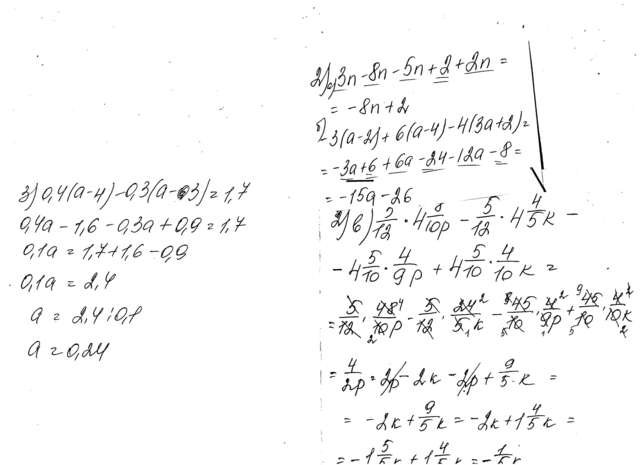 3) 0,4(a-4)-0,3(a-3)=1,7
0,4a-1,6-0,3a+0,9=1,7
0,1a=1,7+1,6-0,9
0,1a=2,4
a=2,4:0,1
a=0,24
2) a) 3n-8n-5n+2+2n=
=-8n+2
б) 3(a-2)+6(a-4)-4(3a+2)=
=-3a+6+6a-24-12a-8=
=-15a-26
2) в) 5/12 · 4 8/10 p - 5/12 · 4 4/5 к -
-4 5/10 · 4/9 p + 4 5/10 · 4/10 к =
=5/12 · 48/10 p - 5/12 · 24/5 к - 45/10 · 4/9 p + 45/10 · 4/10 к
=4/2 p = 2p - 2к - 2p + 9/5 к =
=-2к + 9/5 к = -2к + 1 4/5 к =
=-1 5/5 к + 1 4/5 к = -1/5 к